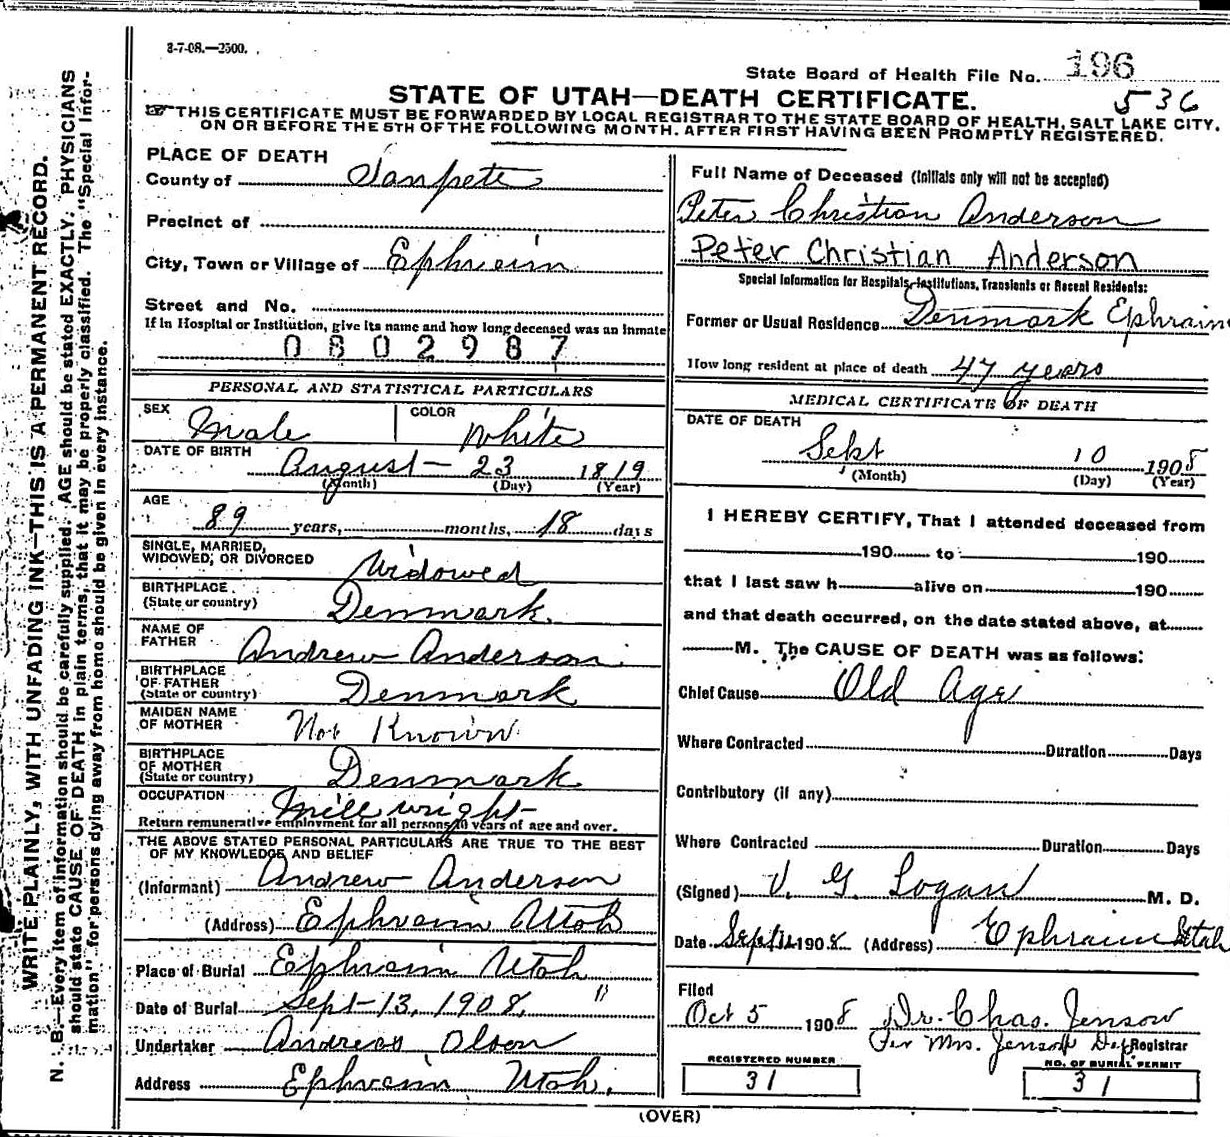 3-7-08.—2500.
State Board of Health File No. 196
536
STATE OF UTAH—DEATH CERTIFICATE.
THIS CERTIFICATE MUST BE FORWARDED BY LOCAL REGISTRAR TO THE STATE BOARD OF HEALTH, SALT LAKE CITY,
ON OR BEFORE THE 5TH OF THE FOLLOWING MONTH. AFTER FIRST HAVING BEEN PROMPTLY REGISTERED.
WRITE PLAINLY, WITH UNFADING INK—THIS IS A PERMANENT RECORD.
N. B.—Every item of information should be carefully supplied. AGE should be stated EXACTLY. PHYSICIANS
should state CAUSE OF DEATH in plain terms, that it may be properly classified. The "Special Infor-
mation" for persons dying away from home should be given in every instance.
PLACE OF DEATH
County of Sanpete
Precinct of
City, Town or Village of Ephraim
Street and No.
If in Hospital or Institution, give its name and how long deceased was an inmate
0802987
PERSONAL AND STATISTICAL PARTICULARS
SEX Male COLOR White
DATE OF BIRTH August 23 1819
(Month) (Day) (Year)
AGE 89 years, months, 18 days
SINGLE, MARRIED,
WIDOWED, OR DIVORCED Widowed
BIRTHPLACE
(State or country) Denmark.
NAME OF
FATHER Andrew Anderson
BIRTHPLACE
OF FATHER
(State or country) Denmark
MAIDEN NAME
OF MOTHER Not Known
BIRTHPLACE
OF MOTHER
(State or country) Denmark
OCCUPATION Mill wright
Return remunerative employment for all persons 10 years of age and over.
THE ABOVE STATED PERSONAL PARTICULARS ARE TRUE TO THE BEST
OF MY KNOWLEDGE AND BELIEF
(Informant) Andrew Anderson
(Address) Ephraim Utah
Place of Burial Ephraim Utah
Date of Burial Sept-13, 1908, "
Undertaker Andreas Olson
Address Ephraim Utah.
Full Name of Deceased (Initials only will not be accepted)
Peter Christian Anderson
Peter Christian Anderson
Special Information for Hospitals, Institutions, Transients or Recent Residents:
Former or Usual Residence Denmark Ephraim
How long resident at place of death 47 years
MEDICAL CERTIFICATE OF DEATH
DATE OF DEATH
Sept 10 1908
(Month) (Day) (Year)
I HEREBY CERTIFY, That I attended deceased from
190 to 190
that I last saw h alive on 190
and that death occurred, on the date stated above, at
M. The CAUSE OF DEATH was as follows:
Chief Cause Old Age
Where Contracted Duration Days
Contributory (if any)
Where Contracted Duration Days
(Signed) V. G. Logan M. D.
Date Sept 12 1908 (Address) Ephraim Utah
Filed
Oct 5 1908 Dr. Chas. Jenson
Per Mrs. Jenson Dep Registrar
REGISTERED NUMBER
31
NO. OF BURIAL PERMIT
31
(OVER)